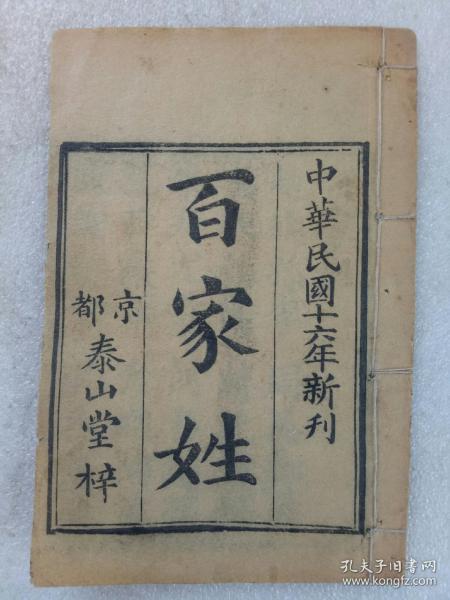 中華民國十六年新刊
百家姓
京都泰山堂梓
孔夫子旧书网
www.kongfz.com